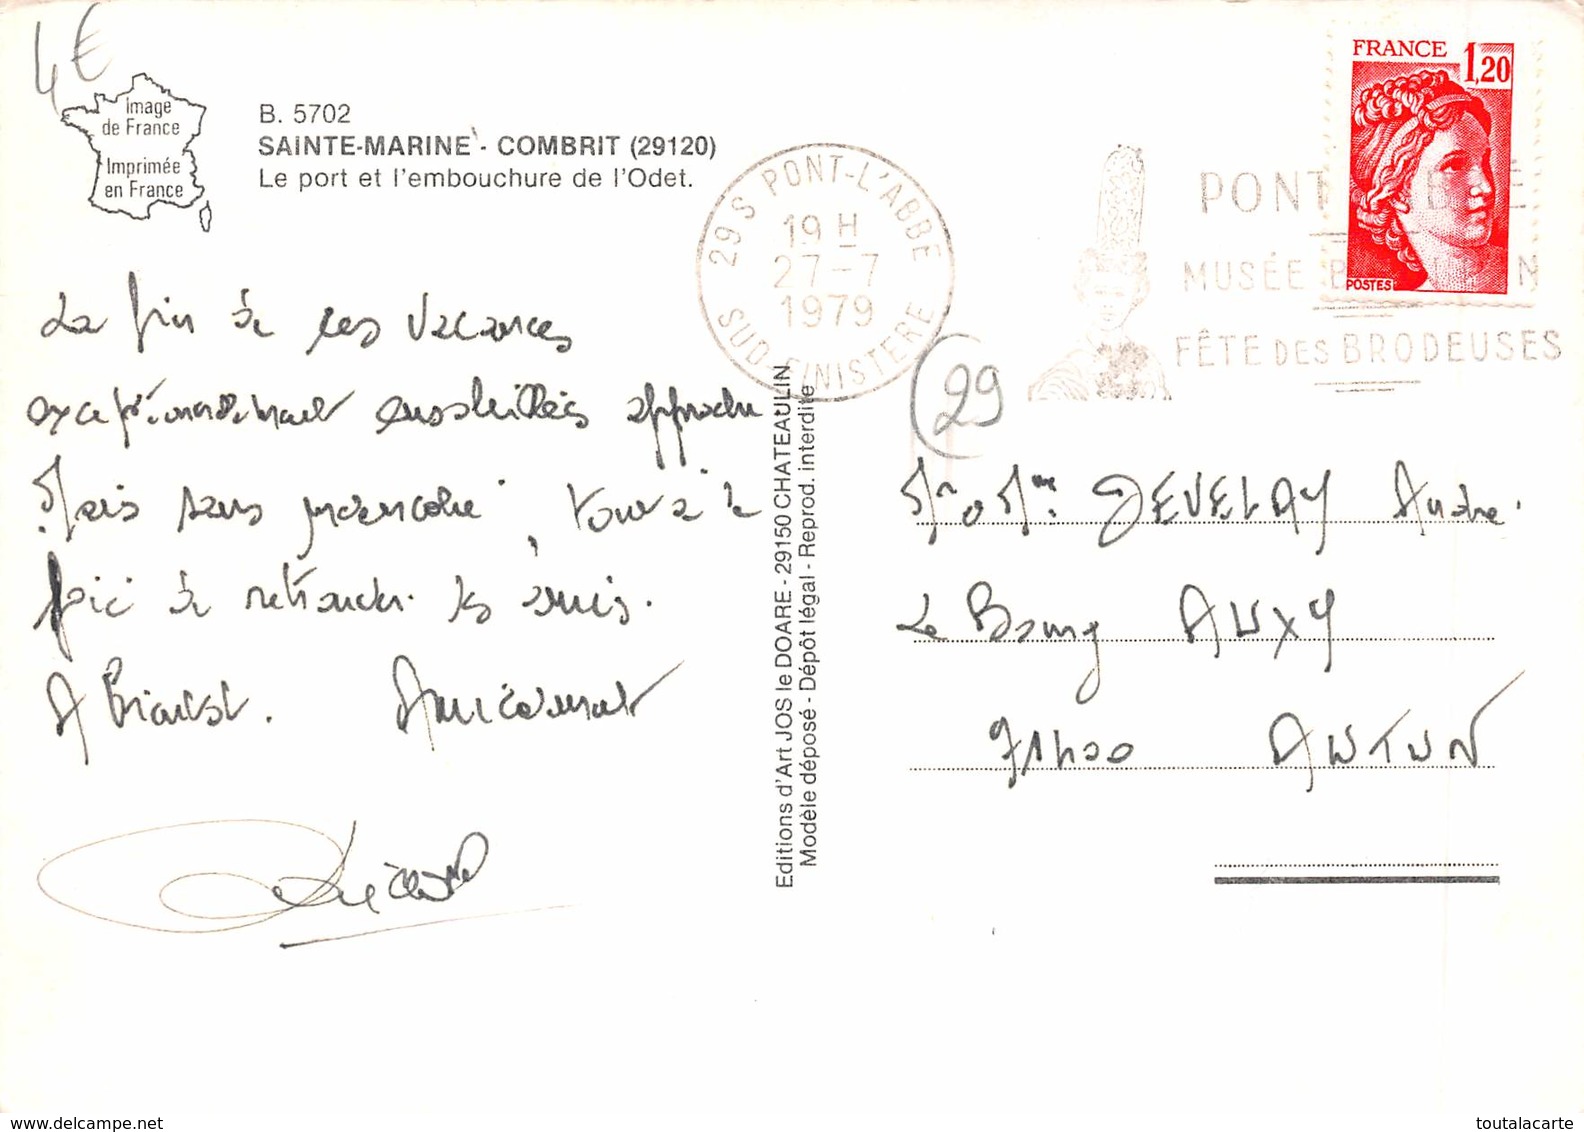 4€
Image
de France
Imprimée
en France
B. 5702
SAINTE-MARINE - COMBRIT (29120)
Le port et l'embouchure de l'Odet.
29 S PONT-L'ABBE
19 H
27-7
1979
SUD-FINISTERE
PONT
MUSÉE
FÊTE DES BRODEUSES
FRANCE 1,20
POSTES
29
La fin de ces vacances
exceptionnellement ensoleillées approche
Mais sans , tout à la
joie de retrouver les amis.
A Bientôt. Amicalement
Editions d'Art JOS le DOARE - 29150 CHATEAULIN
Modèle déposé - Dépôt légal - Reprod. interdite
Mr Mme DEVELAY Andre.
Le Bourg AUXY
71400 AUTUN
www.delcampe.net
toutalacarte